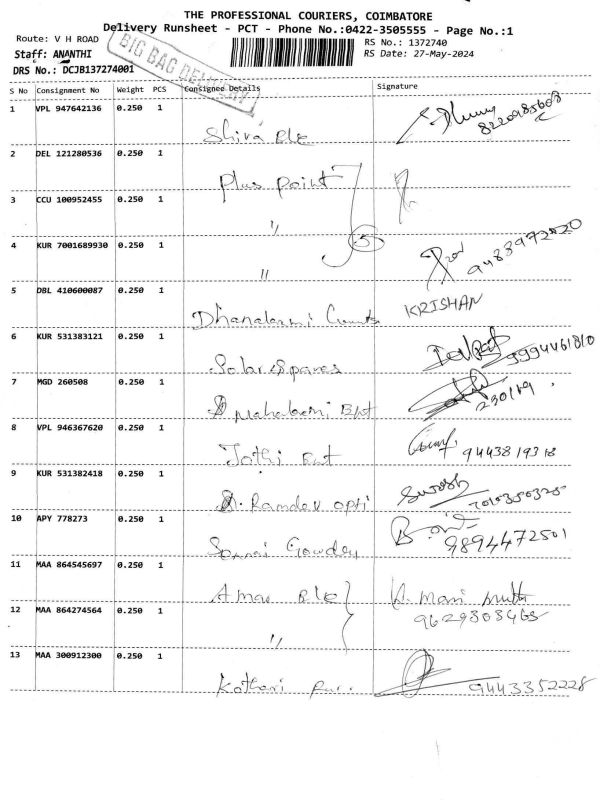 THE PROFESSIONAL COURIERS, COIMBATORE
Delivery Runsheet - PCT - Phone No.:0422-3505555 - Page No.:1
Route: V H ROAD
RS No.: 1372740
Staff: ANANTHI
RS Date: 27-May-2024
DRS No.: DCJB137274001
BIG BAG DELIVERY
S No Consignment No Weight PCS Consignee Details Signature
1 VPL 947642136 0.250 1 Shiva Ele 8220985608
2 DEL 121280536 0.250 1 Plus point
3 CCU 100952455 0.250 1 "
4 KUR 7001689930 0.250 1 "
5 DBL 410600087 0.250 1 Dhanalaxmi KRISHAN
6 KUR 531383121 0.250 1 Solar Spares 9994461810
7 MGD 260508 0.250 1 Mahalaxmi
8 VPL 946367620 0.250 1 Jothi
9 KUR 531382418 0.250 1 Ramdev opti Suresh
10 APY 778273 0.250 1 Gowder 9894472501
11 MAA 864545697 0.250 1 Amar Ele
12 MAA 864274564 0.250 1 " 9629303465
13 MAA 300912300 0.250 1 Kothari 9443352228